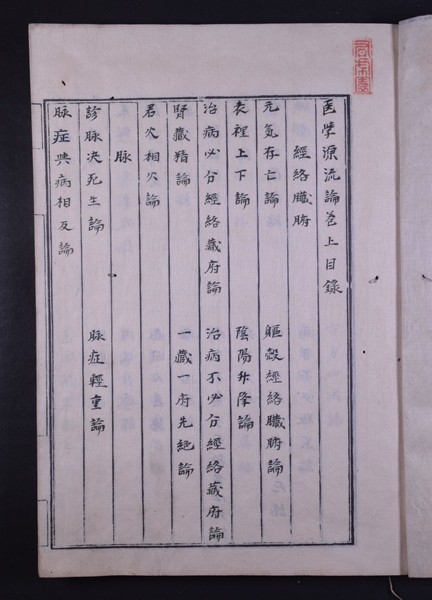 医学源流論卷上目錄
經絡臟腑
元気存亡論 軀殼經絡臟腑論
表裡上下論 陰陽升降論
治病必分經絡蔵府論 治病不必分經絡蔵府論
腎蔵精論 一蔵一府先絕論
君火相火論
脉
診脉决死生論 脉症輕重論
脉症與病相反論